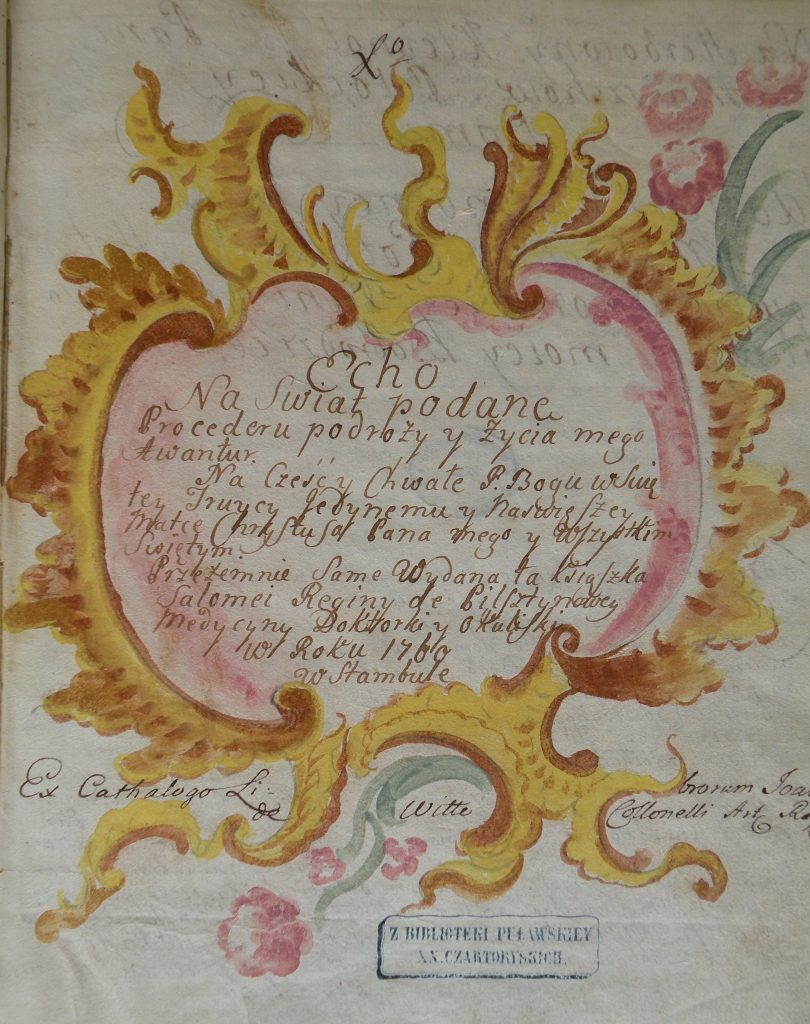 Xo
Echo
Na Swiat podane
Procederu podroży y życia mego
Awantur.
Na Cześć y Chwałe P. Bogu w Swię
tey Truycy Jedynemu y Naswięszey
Matce Chrystusa Pana mego y Wszystkim
Swiętym.
Przezemnie Same Wydana ta ksiąszka
Salomei Reginy de Pilsztynowey
Medycyny Doktorki y Okuliski
w Roku 1760
w Stambule
Ex Cathalogo Li- brorum Joa
de Witte Collonelli Art R
Z BIBLIOTEKI PUŁAWSKIEY
XX. CZARTORYSKICH.